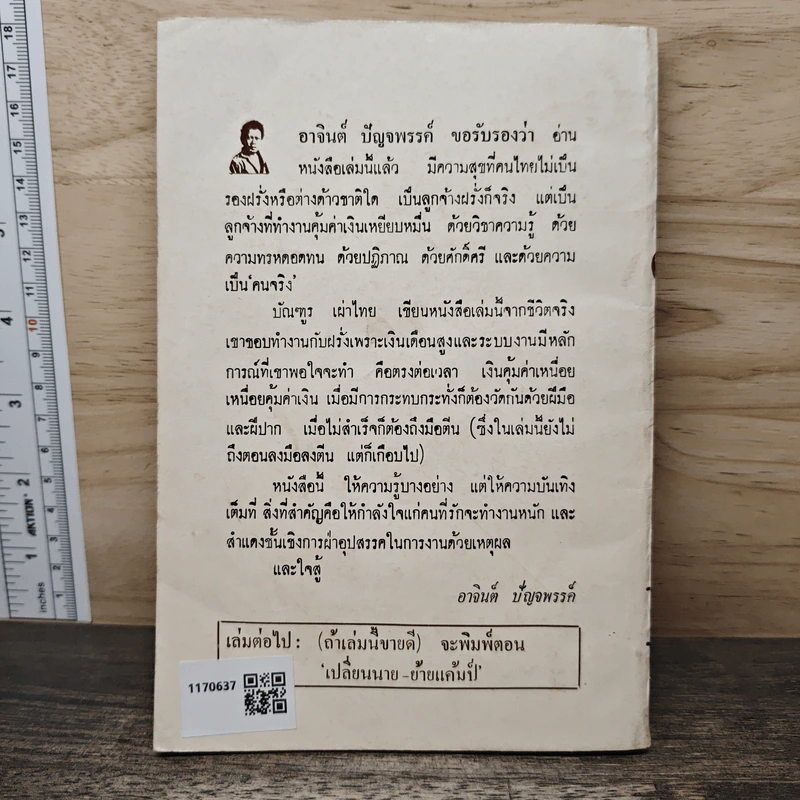 อาจินต์ ปัญจพรรค์ ขอรับรองว่า อ่าน
หนังสือเล่มนี้แล้ว มีความสุขที่คนไทยไม่เป็น
รองฝรั่งหรือต่างด้าวชาติใด เป็นลูกจ้างฝรั่งก็จริง แต่เป็น
ลูกจ้างที่ทำงานคุ้มค่าเงินเหยียบหมื่น ด้วยวิชาความรู้ ด้วย
ความทรหดอดทน ด้วยปฏิภาณ ด้วยศักดิ์ศรี และด้วยความ
เป็น'คนจริง'
บัณฑูร เผ่าไทย เขียนหนังสือเล่มนี้จากชีวิตจริง
เขาชอบทำงานกับฝรั่งเพราะเงินเดือนสูงและระบบงานมีหลัก
การณ์ที่เขาพอใจจะทำ คือตรงต่อเวลา เงินคุ้มค่าเหนื่อย
เหนื่อยคุ้มค่าเงิน เมื่อมีการกระทบกระทั่งก็ต้องวัดกันด้วยฝีมือ
และฝีปาก เมื่อไม่สำเร็จก็ต้องถึงมือตีน (ซึ่งในเล่มนี้ยังไม่
ถึงตอนลงมือลงตีน แต่ก็เกือบไป)
หนังสือนี้ ให้ความรู้บางอย่าง แต่ให้ความบันเทิง
เต็มที่ สิ่งที่สำคัญคือให้กำลังใจแก่คนที่รักจะทำงานหนัก และ
สำแดงชั้นเชิงการฝ่าอุปสรรคในการงานด้วยเหตุผล
และใจสู้
อาจินต์ ปัญจพรรค์
เล่มต่อไป : (ถ้าเล่มนี้ขายดี) จะพิมพ์ตอน
'เปลี่ยนนาย-ย้ายแค้มป์'
1170637
18
17
16
15
14
13
12
11
10
9
8
7
6
5
4
3
2
1
5
4
3
2
1
inches